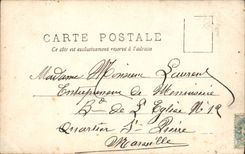 CARTE POSTALE
Ce côté est exclusivement réservé à l'adresse
Madame Monsieur Laurent
Entrepreneur de Menuiserie
Bd de L'Eglise No 12
Quartier St Pierre
Marseille